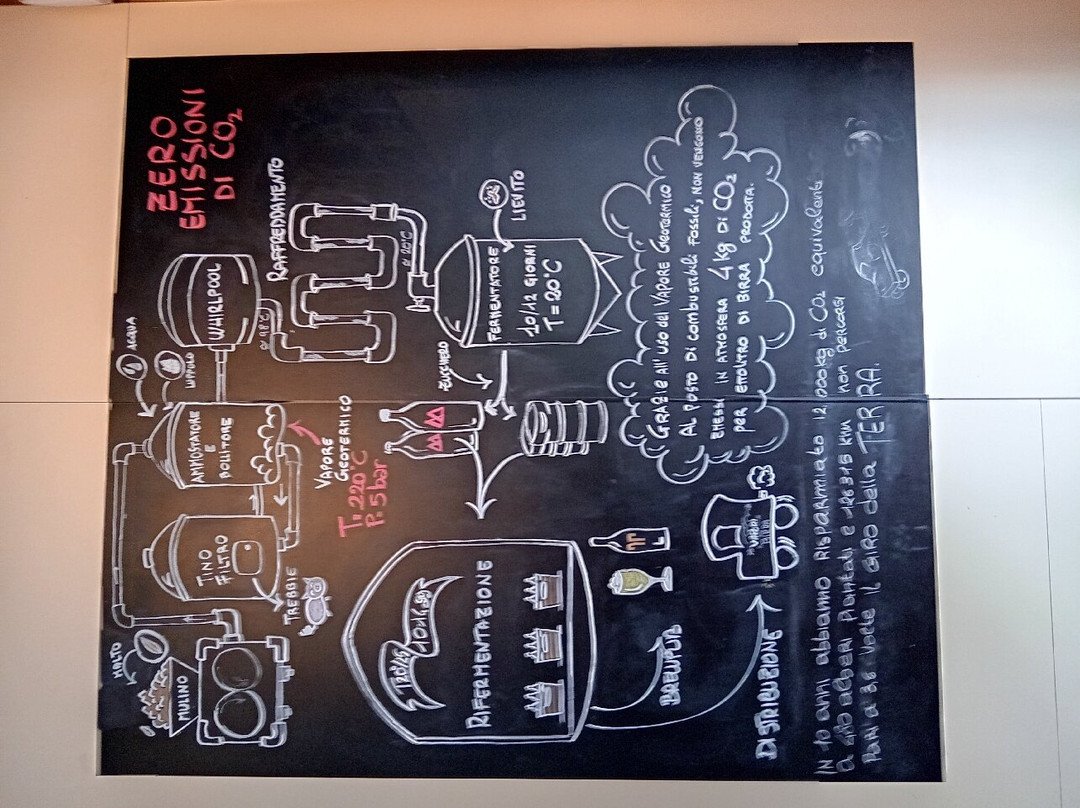 ZERO
EMISSIONI
DI CO₂
MALTO
MULINO
TREBBIE
TINO
FILTRO
AMMOSTATORE
E
BOLLITORE
ACQUA
LUPPOLO
VAPORE
GEOTERMICO
T: 220°C
P: 5 bar
WHIRLPOOL
98°C
RAFFREDDAMENTO
20°C
LIEVITO
FERMENTATORE
10/12 GIORNI
T = 20°C
ZUCCHERO
RIFERMENTAZIONE
BREWPUB
DISTRIBUZIONE
VAPORI
BIRRA
GRAZIE ALL'USO del VAPORE GEOTERMICO
AL POSTO DI COMBUSTIBILI FOSSILI, NON VENGONO
EMESSI IN ATMOSFERA 4 kg DI CO₂
PER ETTOLITRO DI BIRRA PRODOTTA.
IN 10 anni abbiamo RISPARMIATO 12 000kg di CO₂ equivalenti
a alberi piantati e km non percorsi
Pari a volte IL GIRO della TERRA.